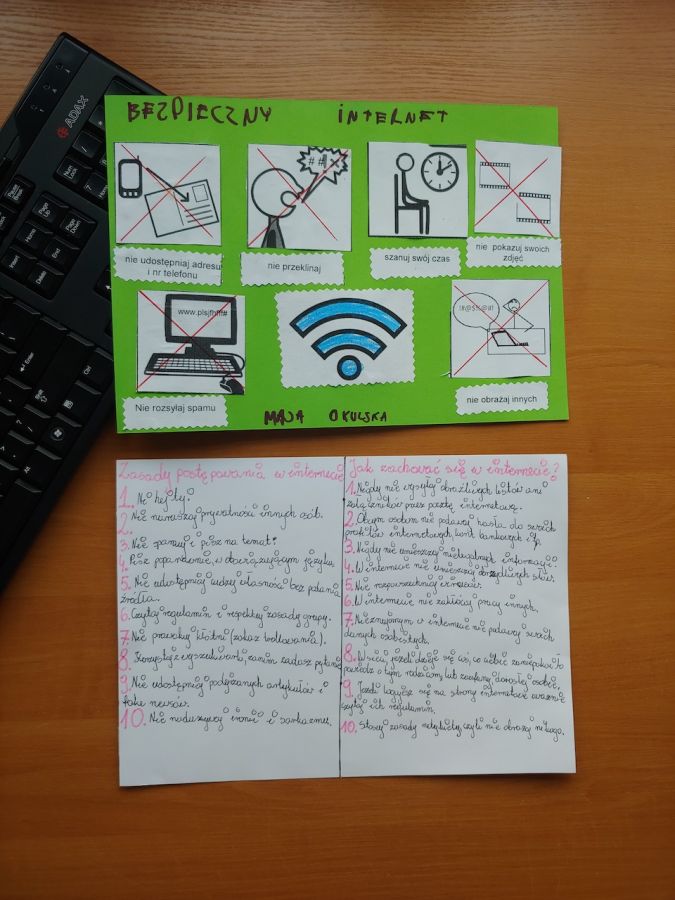 BEZPIECZNY INTERNET
nie udostępniaj adresu
i nr telefonu
##!
nie przeklinaj
szanuj swój czas
nie pokazuj swoich
zdjęć
www.plsjfhfff#
Nie rozsyłaj spamu
nie obrażaj innych
MAJA OKULSKA
Zasady postępowania w internecie
1. Nie hejtuj!
2. Nie naruszaj prywatności innych osób.
3. Nie spamuj i pisz na temat!
4. Pisz poprawnie, w obowiązującym języku.
5. Nie udostępniaj cudzej własności bez podania
źródła.
6. Czytaj regulamin i respektuj zasady grupy.
7. Nie prowokuj kłótni (zakaz trollowania).
8. Skorzystaj z wyszukiwarki, zanim zadasz pytanie
9. Nie udostępniaj podejrzanych artykułów i
fake newsów.
10. Nie nadużywaj ironii i sarkazmu.
Jak zachować się w internecie?
1. Nigdy nie wysyłaj obraźliwych listów ani
załączników przez pocztę internetową.
2. Obcym osobom nie podawaj hasła do swoich
profili internetowych, kont bankowych i
3. Nigdy nie umieszczaj nielegalnych informacji.
4. W internecie nie umieszczaj obraźliwych słów.
5. Nie rozpowszechniaj
6. W internecie nie zakłócaj pracy innych.
7. Nieznajomym w internecie nie podawaj swoich
danych osobistych.
8. W sieci, jeżeli dzieje się coś, co ciebie zaniepokoiło
powiedz o tym rodzicom, lub zaufanej dorosłej osobie.
9. Jeżeli logujesz się na strony internetowe uważnie
czytaj ich regulamin.
10. Stosuj zasady netykiety, czyli nie obrażaj nikogo.
ADAX
Num
Lock
Page
Up
Page
Down
Home
End
Insert
Delete
Enter
Shift
Ctrl